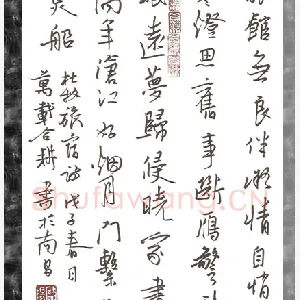 館無良伴凝情自悄
燈思舊事斷鴈警
遠夢歸侵曉家書
年滄江好烟月門繫
魚船
杜牧旅宿詩戊子春月
萬載合耕書於南昌
Shufawang.cn